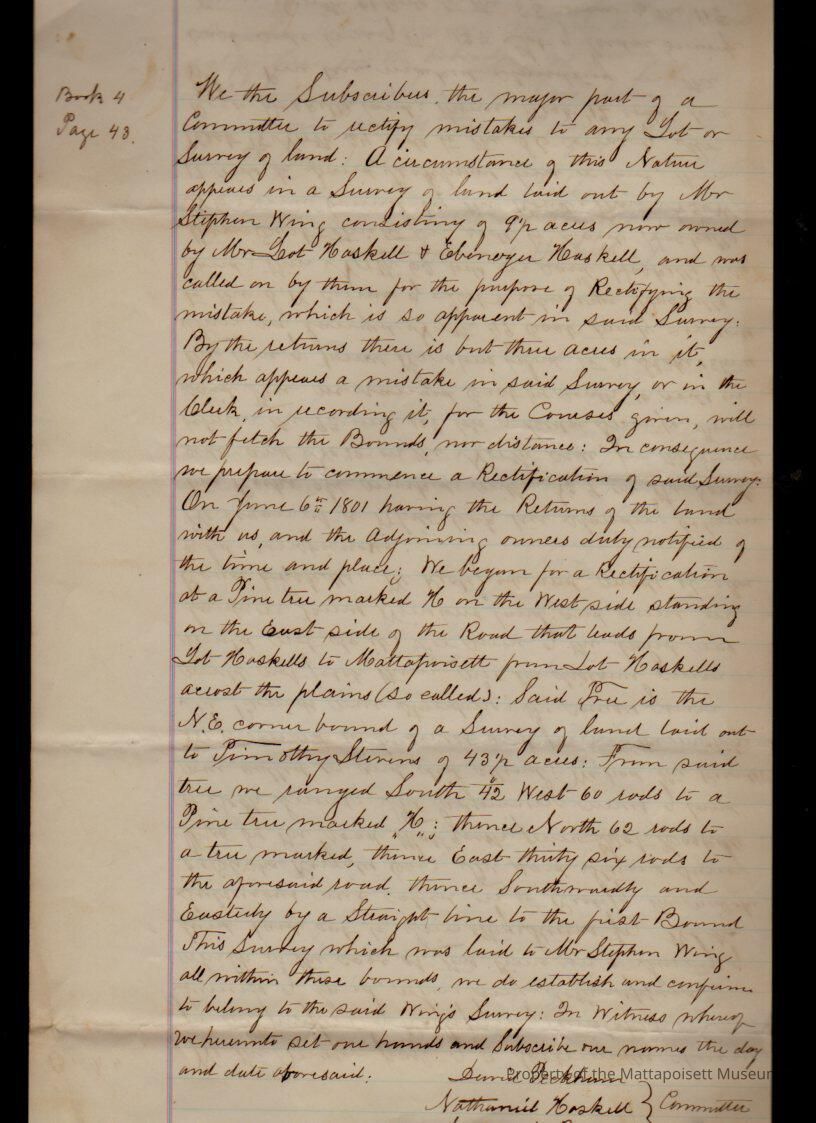 Book 4
Page 43.
We the Subscribers, the major part of a
Committee to rectify mistakes to any Lot or
Survey of land: A circumstance of this Nature
appears in a Survey of land laid out by Mr
Stephen Wing consisting of 9½ acres now owned
by Mr Lot Haskell & Ebenezer Haskell, and was
called on by them for the purpose of Rectifying the
mistake, which is so apparent in said Survey:
By the returns there is but three acres in it,
which appears a mistake in said Survey, or in the
Clerk, in recording it, for the Courses given, will
not fetch the Bounds, nor distance: In consequence
we prepare to commence a Rectification of said Survey:
On June 6th 1801 having the Returns of the land
with us, and the adjoining owners duly notified of
the time and place; We began for a Rectification
at a Pine tree marked H on the West side standing
on the East side of the Road that leads from
Lot Haskells to Mattapoisett from Lot Haskells
acrost the plains (so called): Said Tree is the
N.E. corner bound of a Survey of land laid out
to Timothy Stevens of 43½ acres: From said
tree we ranged South 42° West 60 rods to a
Pine tree marked "H"; thence North 62 rods to
a tree marked, thence East thirty six rods to
the aforesaid road, thence Southwardly and
Easterly by a Straight line to the first Bound
This Survey which was laid to Mr Stephen Wing
all within these bounds, we do establish and confirm
to belong to the said Wing's Survey: In Witness whereof
we hereunto set our hands and Subscribe our names the day
and date aforesaid:
David Peckham
Nathaniel Haskell } Committee
Property of the Mattapoisett Museum